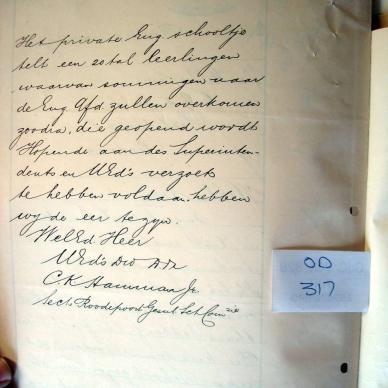 Het private Eng. schooltje
telt een 20 tal leerlingen
waarvan sommigen naar
de Eng Afd zullen overkomen
zoodra, die geopend wordt
Hopende aan des Superinten-
dents en UEd's verzoek
te hebben voldaan. hebben
wy de eer te zyn.
WelEd Heer
UEd's Dw Dr
C K Hamman Jr.
Sects Roodepoort Gemt Sch Comzie
OD
317